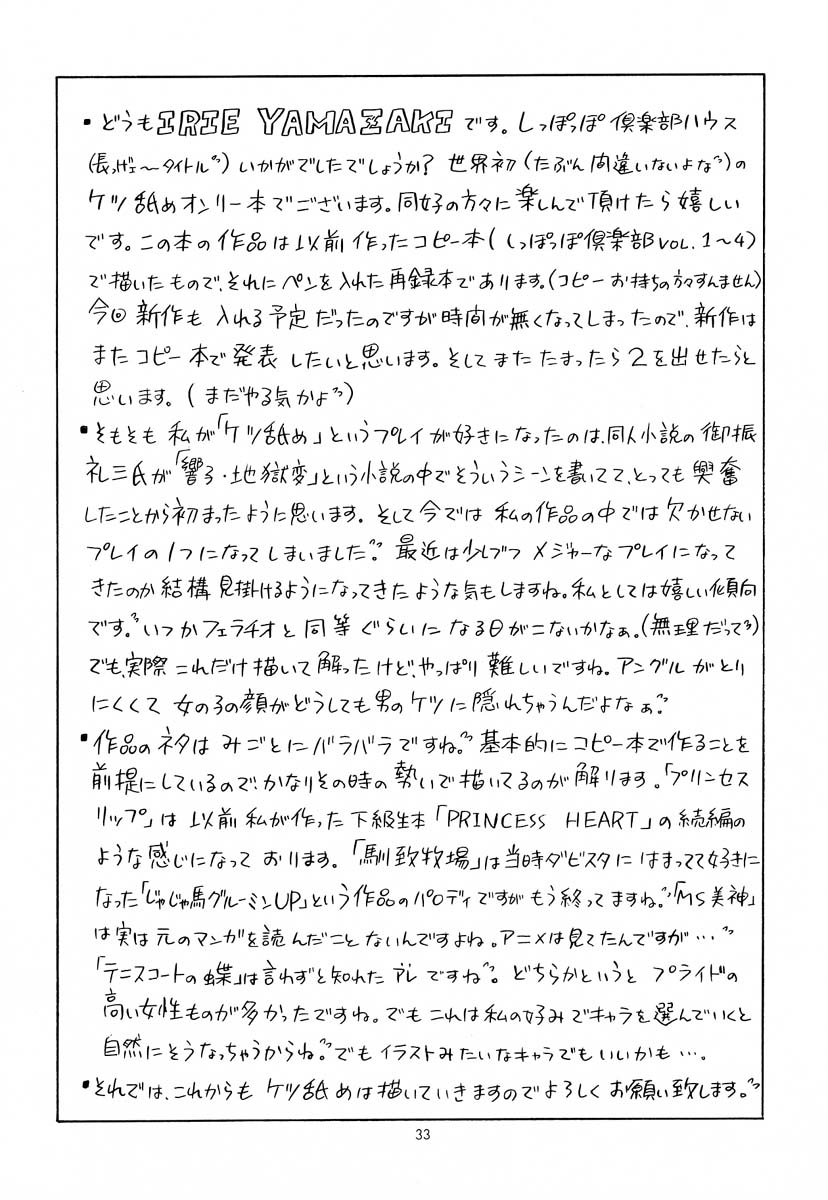 ・どうもIRIE YAMAZAKIです。しっぽっぽ倶楽部ハウス
(長っげェ〜タイトル)いかがでしたでしょうか?世界初(たぶん間違いないよな)の
ケツ舐めオンリー本でございます。同好の方々に楽しんで頂けたら嬉しい
です。この本の作品は以前作ったコピー本(しっぽっぽ倶楽部VOL.1〜4)
で描いたもので、それにペンを入れた再録本であります。(コピーお持ちの方々すんません)
今回新作も入れる予定だったのですが時間が無くなってしまったので、新作は
またコピー本で発表したいと思います。そしてまたたまったら2を出せたらと
思います。(まだやる気かよ)
・そもそも私が「ケツ舐め」というプレイが好きになったのは、同人小説の御振
礼三氏が「響子・地獄変」という小説の中でそういうシーンを書いてて、とっても興奮
したことから初まったように思います。そして今では私の作品の中では欠かせない
プレイの1つになってしまいました。最近は少しづつメジャーなプレイになって
きたのか結構見掛けるようになってきたような気もしますね。私としては嬉しい傾向
です。いつかフェラチオと同等ぐらいになる日がこないかなぁ。(無理だって)
でも、実際これだけ描いて解ったけど、やっぱり難しいですね。アングルがとり
にくくて女の子の顔がどうしても男のケツに隠れちゃうんだよなぁ。
・作品のネタはみごとにバラバラですね。基本的にコピー本で作ることを
前提にしているので、かなりその時の勢いで描いてるのが解ります。「プリンセス
リップ」は以前私が作った下級生本「PRINCESS HEART」の続編の
ような感じになっております。「馴致牧場」は当時ダビスタにはまってて好きに
なった「じゃじゃ馬グルーミンUP」という作品のパロディですがもう終ってますね。「MS美神」
は実は元のマンガを読んだことないんですよね。アニメは見てたんですが…
「テニスコートの蝶」は言わずと知れたアレですね。どちらかというとプライドの
高い女性ものが多かったですね。でもこれは私の好みでキャラを選んでいくと
自然にそうなっちゃうからね。でもイラストみたいなキャラでもいいかも…。
・それでは、これからもケツ舐めは描いていきますのでよろしくお願い致します。
33